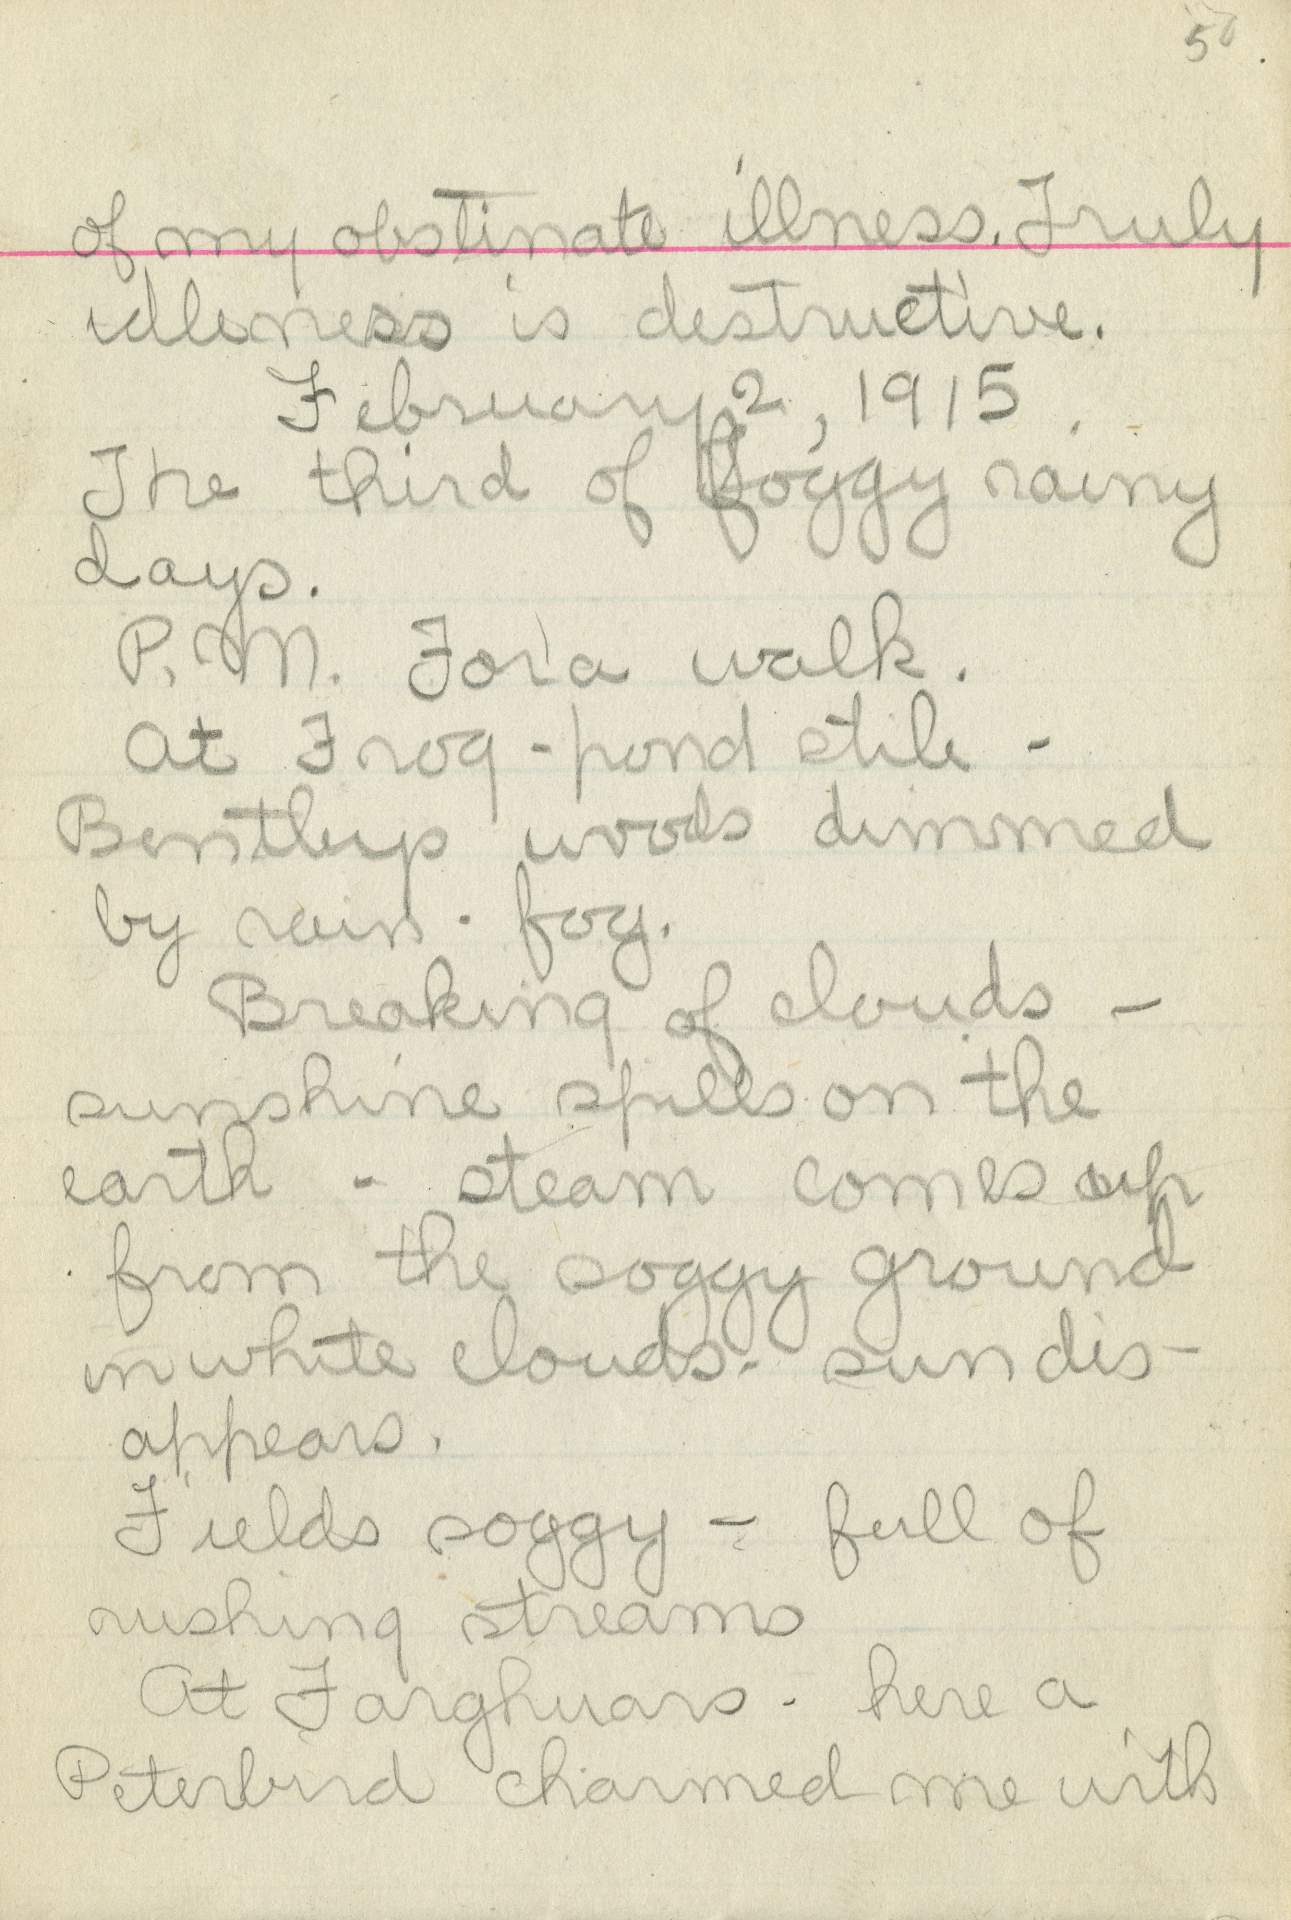 50.
of my obstinate illness. Truly
idleness is destructive.
February 2, 1915.
The third of foggy rainy
days.
P.M. For a walk.
At Frog-pond stile -
Bentleys woods dimmed
by rain - fog.
Breaking of clouds -
sunshine spills on the
earth - steam comes up
from the soggy ground
in white clouds - sun dis-
appears.
Fields soggy - full of
rushing streams
At Farghuars - here a
Peterbird charmed me with